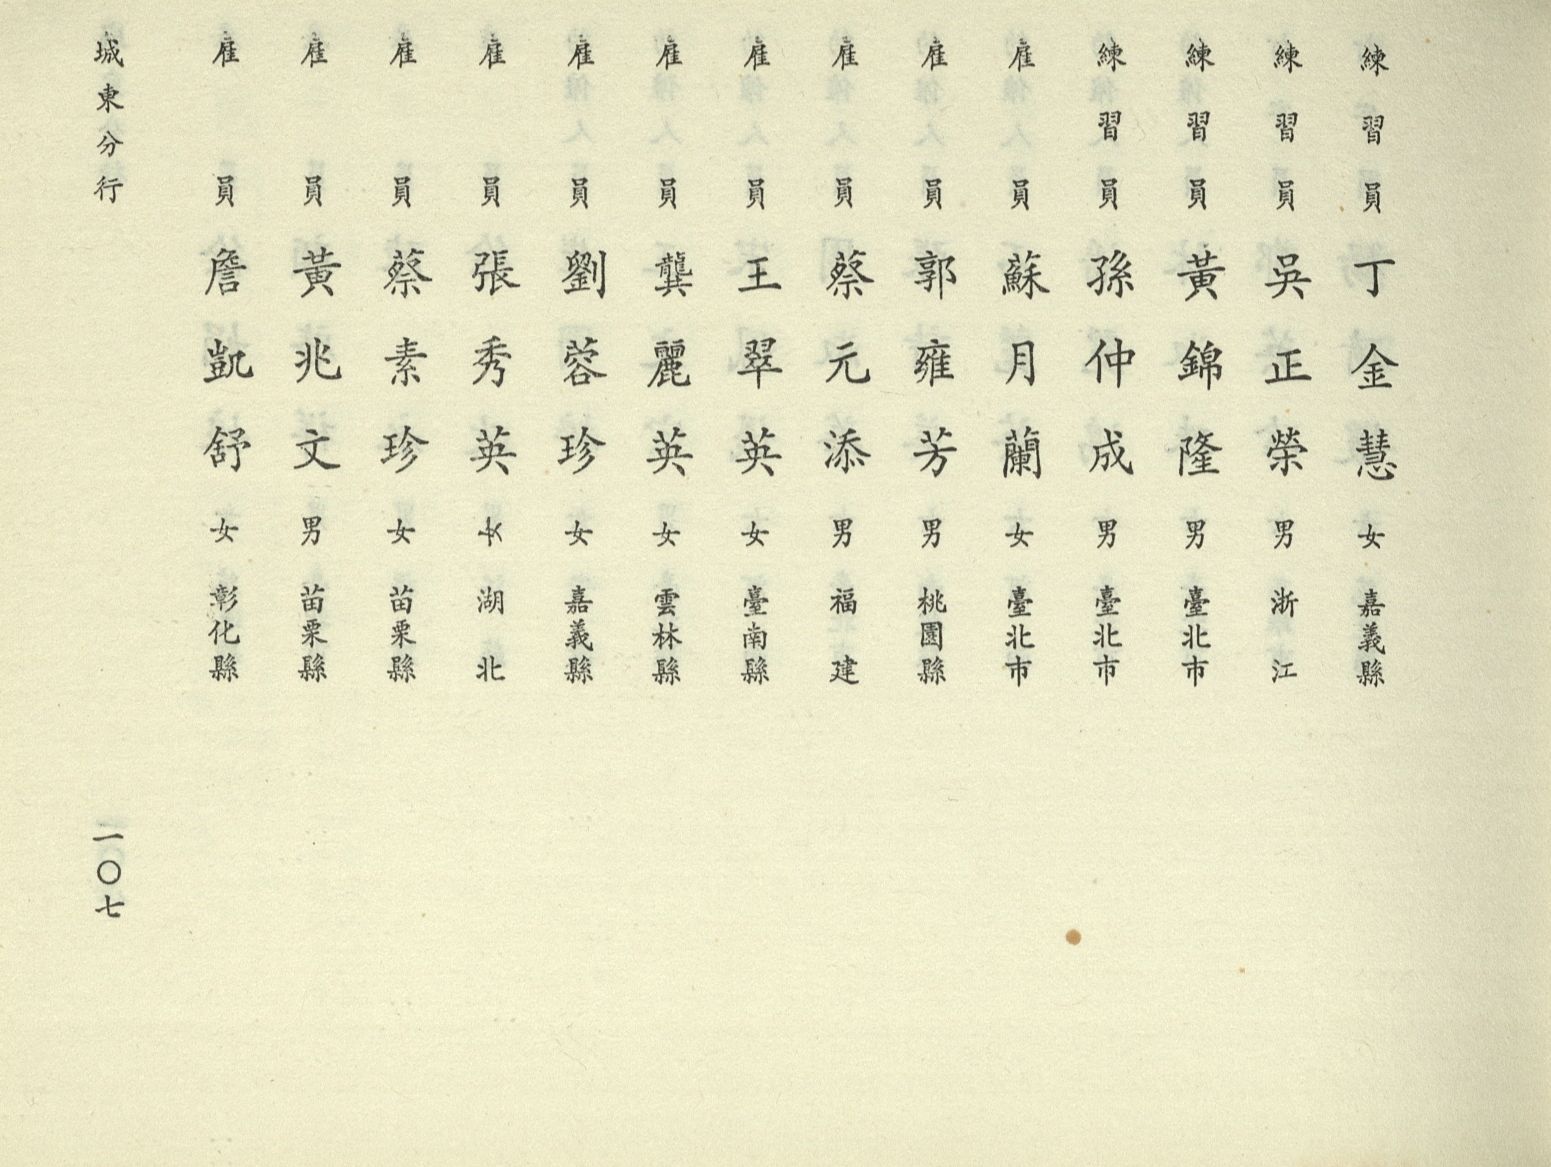 練習員 丁金慧 女 嘉義縣
練習員 吳正榮 男 浙江
練習員 黃錦隆 男 臺北市
練習員 孫仲成 男 臺北市
雇員 蘇月蘭 女 臺北市
雇員 郭雍芳 男 桃園縣
雇員 蔡元添 男 福建
雇員 王翠英 女 臺南縣
雇員 龔麗英 女 雲林縣
雇員 劉蓉珍 女 嘉義縣
雇員 張秀英 女 湖北
雇員 蔡素珍 女 苗栗縣
雇員 黃兆文 男 苗栗縣
雇員 詹凱舒 女 彰化縣
城東分行
一〇七